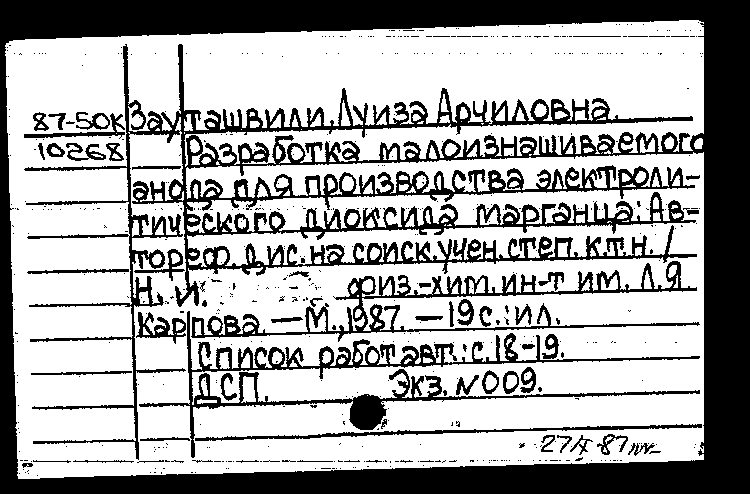 87-50К Зауташвили, Луиза Арчиловна.
10268 Разработка малоизнашиваемого
анода для производства электроли-
тического диоксида марганца: Ав-
тореф. дис. на соиск. учен. степ. к.т.н. /
Н. и. физ.-хим. ин-т им. Л.Я.
Карпова. — М., 1987. — 19 с.: ил.
Список работ авт.: с. 18-19.
ДСП. Экз. № 009.